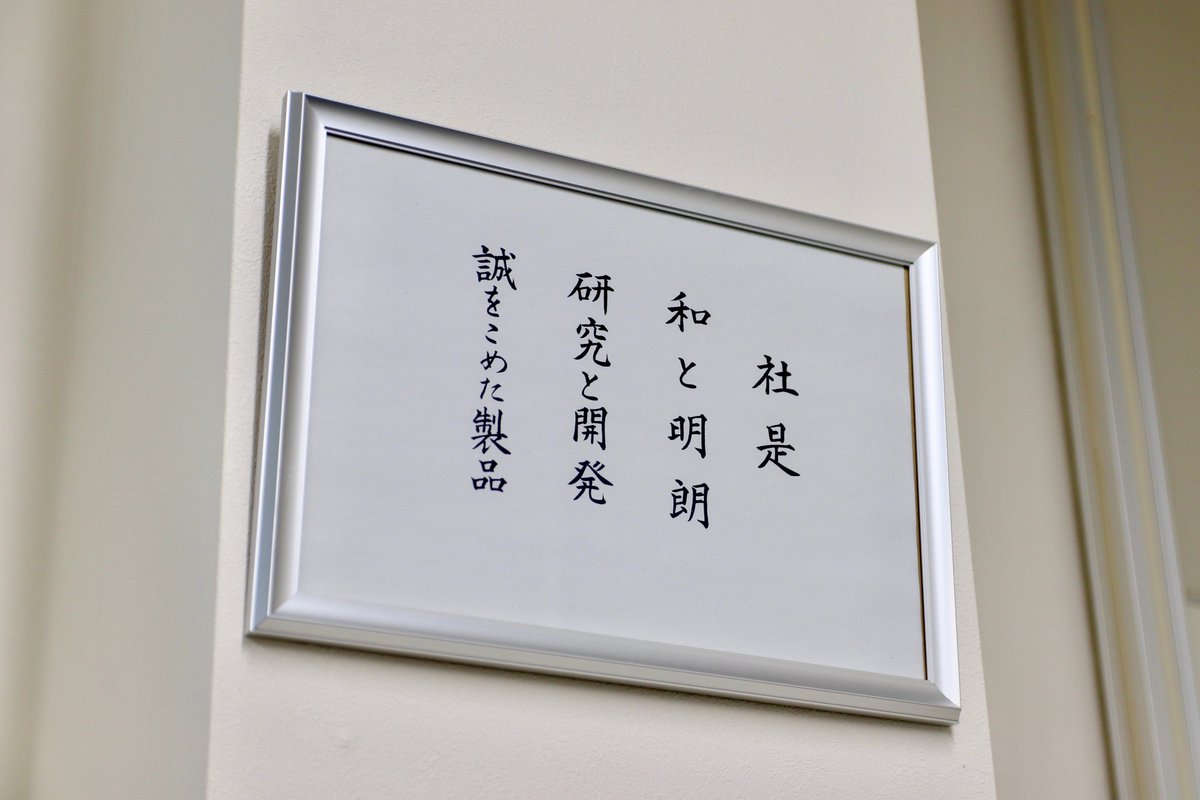 社是
和と明朗
研究と開発
誠をこめた製品